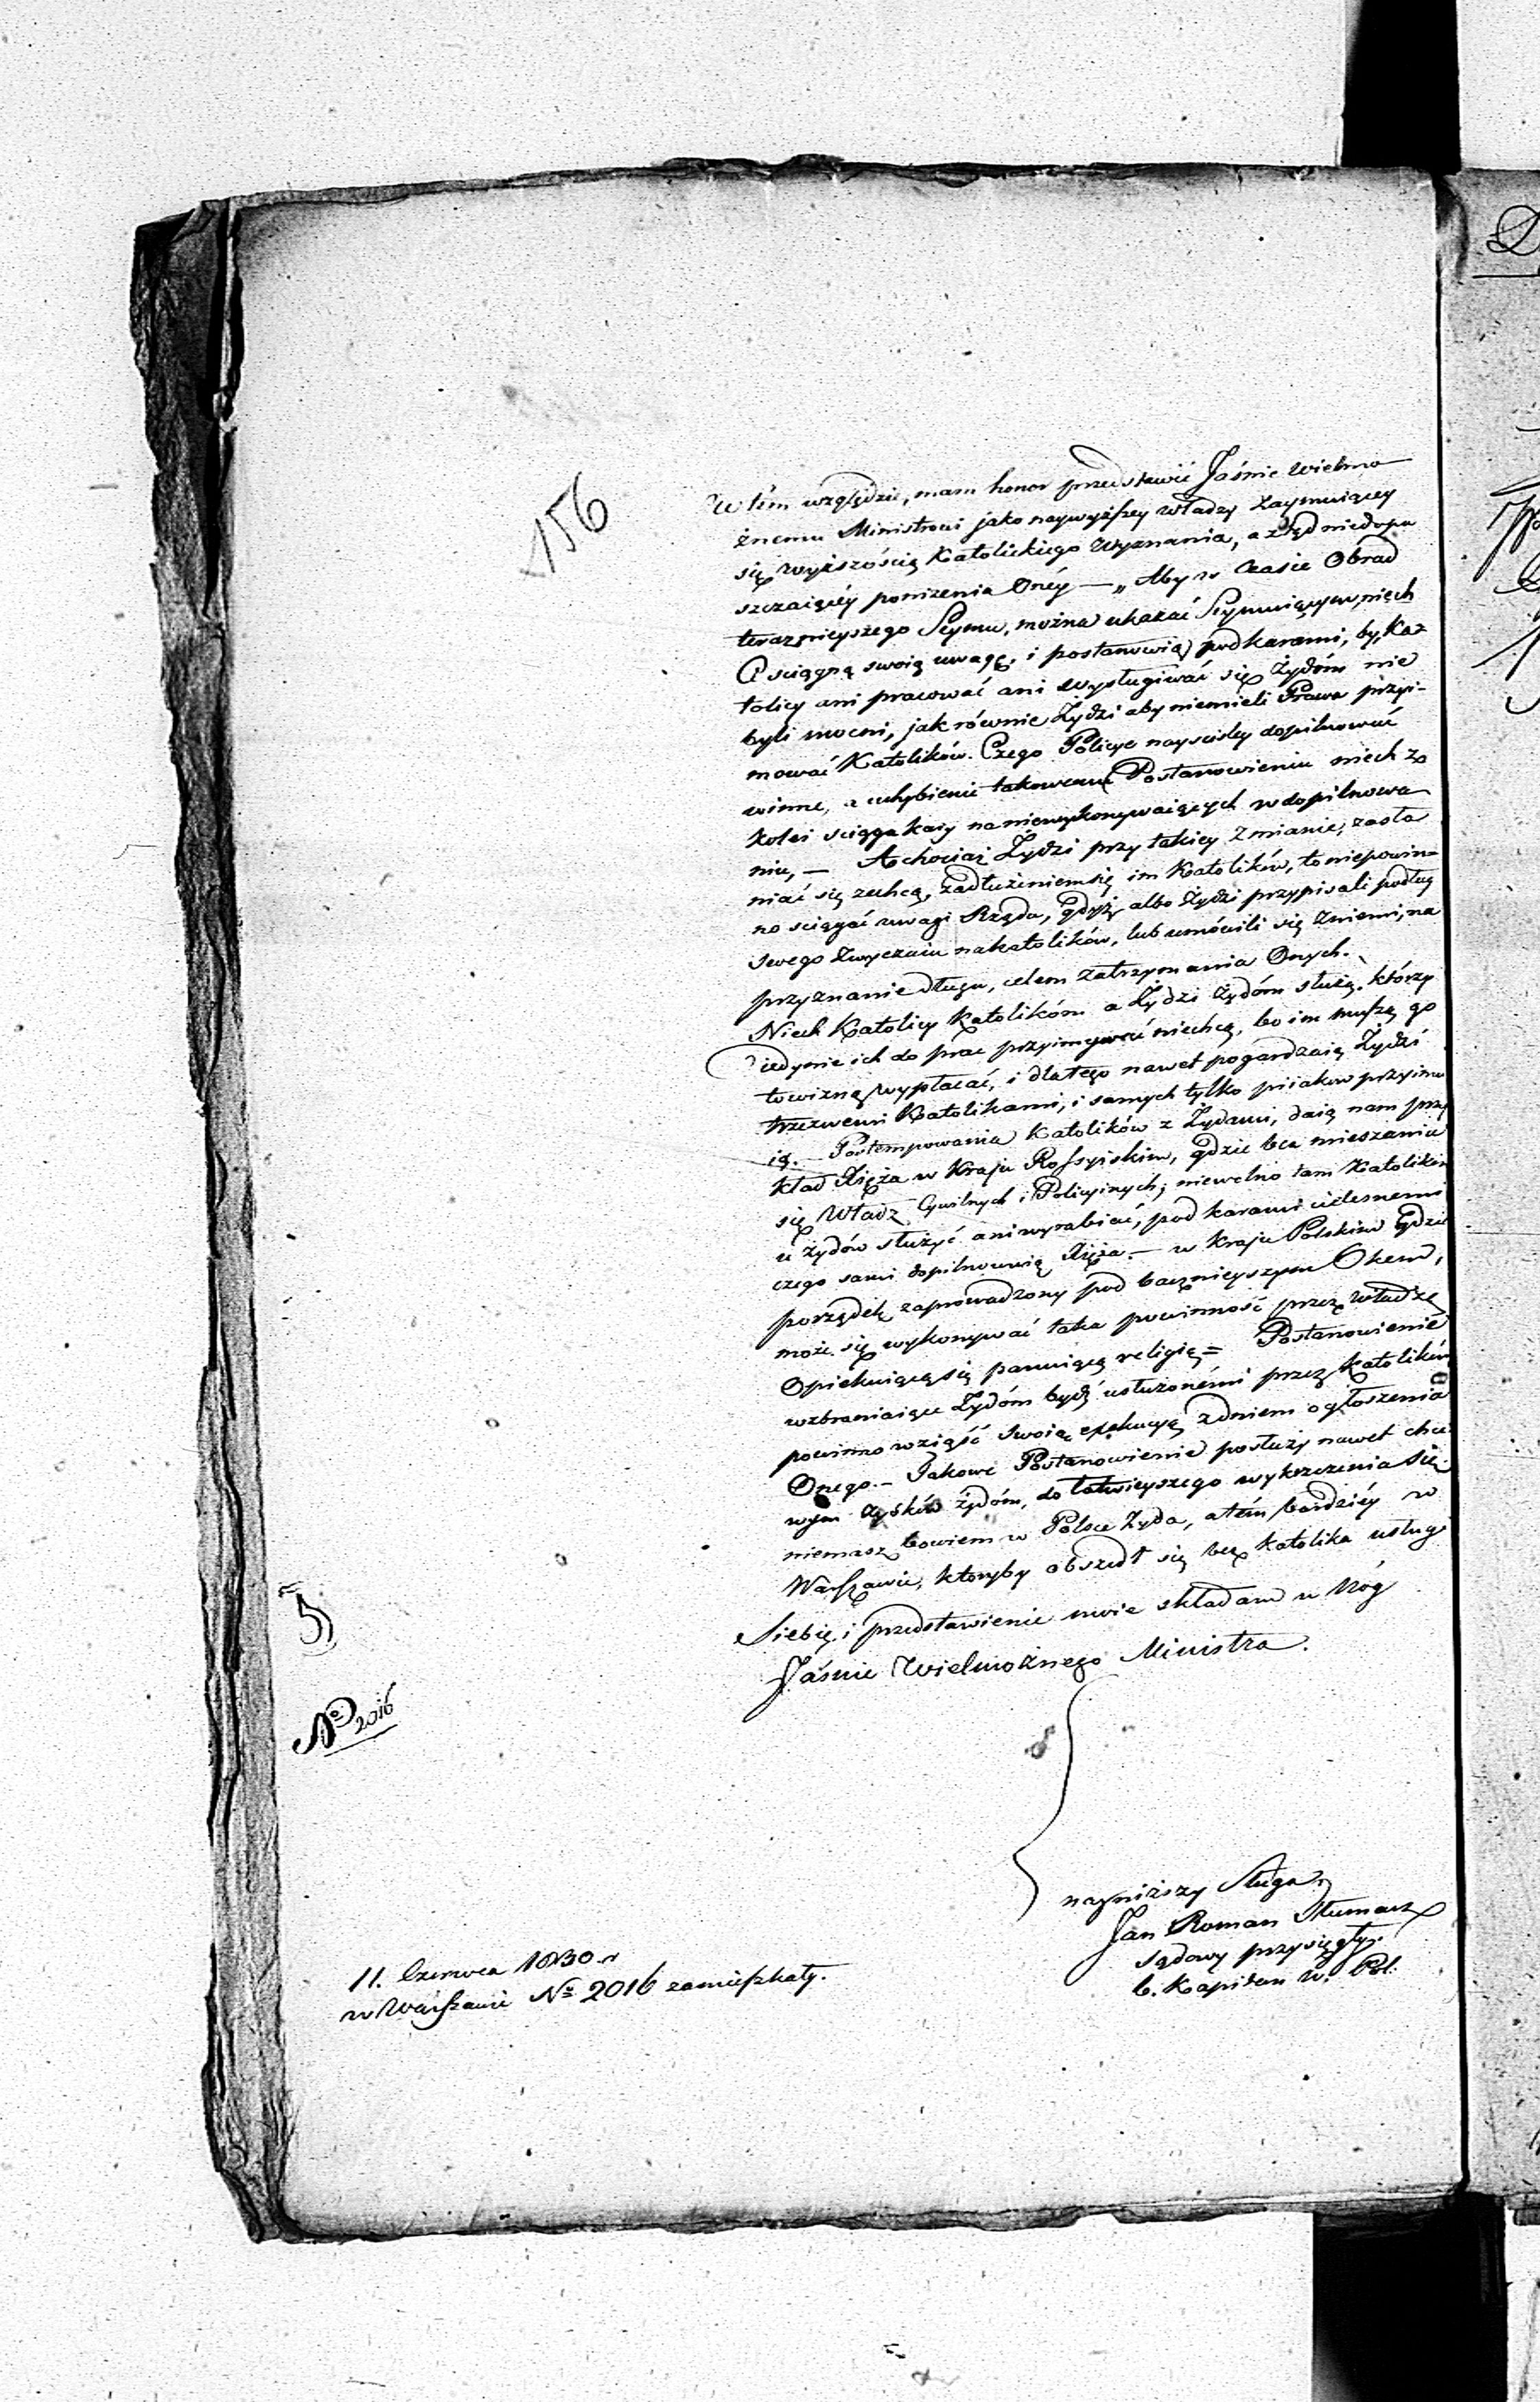 156
W tém względzie, mam honor przedstawić Jaśnie Wielmo
żnemu Ministrowi jako naywyższey władzy zaymuiącey
się wyższością Katolickiego Wyznania, a ztąd niedopu
szczaiącéy poniżenia Onéy — „Aby w Czasie Obrad
teraznieyszego Seymu, można ukazać Seymuiącym, niech
ściągną swoią uwagę, i postanowią pod karami, by Ka=
tolicy ani pracować ani wysługiwać się Żydóm nie
byli mocni, jak równie Żydzi aby niemieli Prawa przyi-
mować Katolików. Czego Policye nayscisley dopilnować
winne, a uchybienie takowemu Postanowieniu niech za
kolei sciąga kary na niewykonywaiących w dopilnowa
niu, — A chociaż Żydzi przy takiey Zmianie, zasła
niać się zechcą, zadłużeniem się im Katolików, to niepowin=
no sciągać uwagi Rządu, gdyż albo Żydzi przypisali podług
swego Zwyczaiu na katolików, lub umówili się Zniemi, na
przyznanie długu, celem zatrzymania Onych.
Niech Katolicy Katolikóm a Żydzi Żydóm służą, którzy
iedynie ich do prac przyimywać niechcą, bo im muszą go
towizną wypłacać, i dlatego nawet pogardzaią Żydzi
trzezwemi Katolikami, i samych tylko piiaków przyimu
ią. — Postempowania Katolików z Żydami, daią nam przy
kład Xięża w Kraju Rossyiskim, gdzie bez mieszania
się Władz Cywilnych i Policyinych, niewolno tam Katolikóm
u żydów służyć ani wyrabiać, pod karami cielesnemi
czego sami dopilnowuią Xięża. — w Kraju Polskim gdzie
porządek zaprowadzony pod bacznieyszym Okem,
może się wykonywać taka powinność przez władzę
Opiekuiącą się panuiącą religią = Postanowienie
wzbraniaiące Żydóm bydź usłużonémi przez Katolików
powinno wziąść swoią exekucyą z dniem ogłoszenia
Onego. — Jakowe Postanowienie posłuży nawet chci
wym zysków żydóm, do łatwieyszego wykrzczenia się
niemasz bowiem w Polsce Żyda, a tém bardziéy w
Warszawie, któryby obszedł się bez katolika usług
Siebie i przedstawienie moie składam u Nóg
Jaśnie Wielmożnego Ministra.
5
No 2016
nayniższy Sługa
Jan Roman Tłumacz
sądowy przysięgły.
b. Kapitan W. Pol.
11. Czerwca 1830. r
w Warszawie No 2016 zamieszkały.